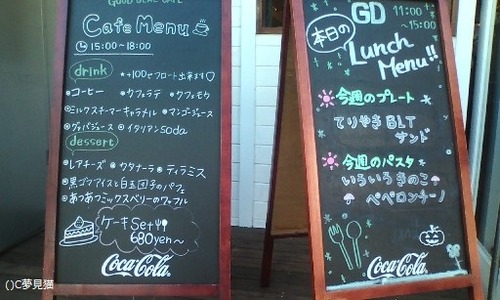 GOOD DEAL CAFE
Cafe Menu
15:00~18:00
drink
*+100でフロート出来ます♡
コーヒー カフェラテ カフェモカ
ミルクスチーマーキャラメル マンゴージュース
グァバジュース イタリアンsoda
dessert
レアチーズ カタラーナ ティラミス
黒ゴマアイスと白玉団子のパフェ
あつあつミックスベリーのワッフル
ケーキSet
680yen~
Coca-Cola
GD 11:00
~15:00
本日の
Lunch
Menu!!
今週のプレート
てりやきBLT
サンド
今週のパスタ
いろいろきのこ
ペペロンチーノ
Coca-Cola
()C夢見猫